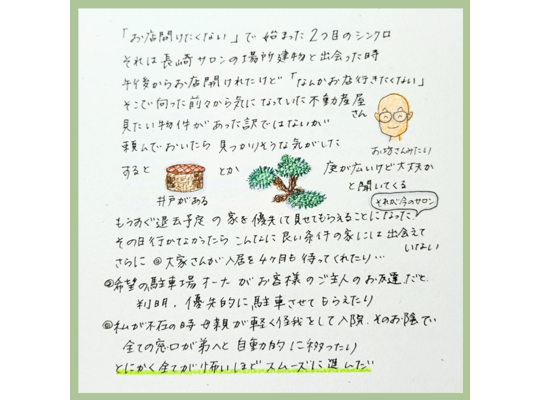 「お店開けたくない」で始まった2つ目のシンクロ
それは長崎サロンの場所建物と出会った時
午後からお店開けれたけど「なんかお店行きたくない」
そこで向った前々から気になっていた不動産屋さん
見たい物件があった訳ではないが
頼んでおいたら見つかりそうな気がした
お坊さんみたい
すると
とか
庭が広いけど大丈夫か
と聞いてくる
井戸がある
それが今のサロン
もうすぐ退去予定の家を優先して見せてもらえることになった
その日行かなかったらこんなに良い条件の家には出会えていない
さらに @大家さんが入居を4ヶ月も待ってくれたり…
@希望の駐車場オーナーがお客様のご主人のお友達だと
判明、優先的に駐車させてもらえたり
@私が不在の時母親が軽く怪我をして入院、そのお陰で
全ての窓口が弟へと自動的に移ったり
とにかく全てが怖いほどスムーズに進んだ